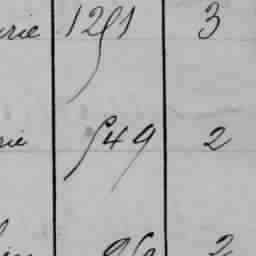 rie 1251 3
rie 549 2
2